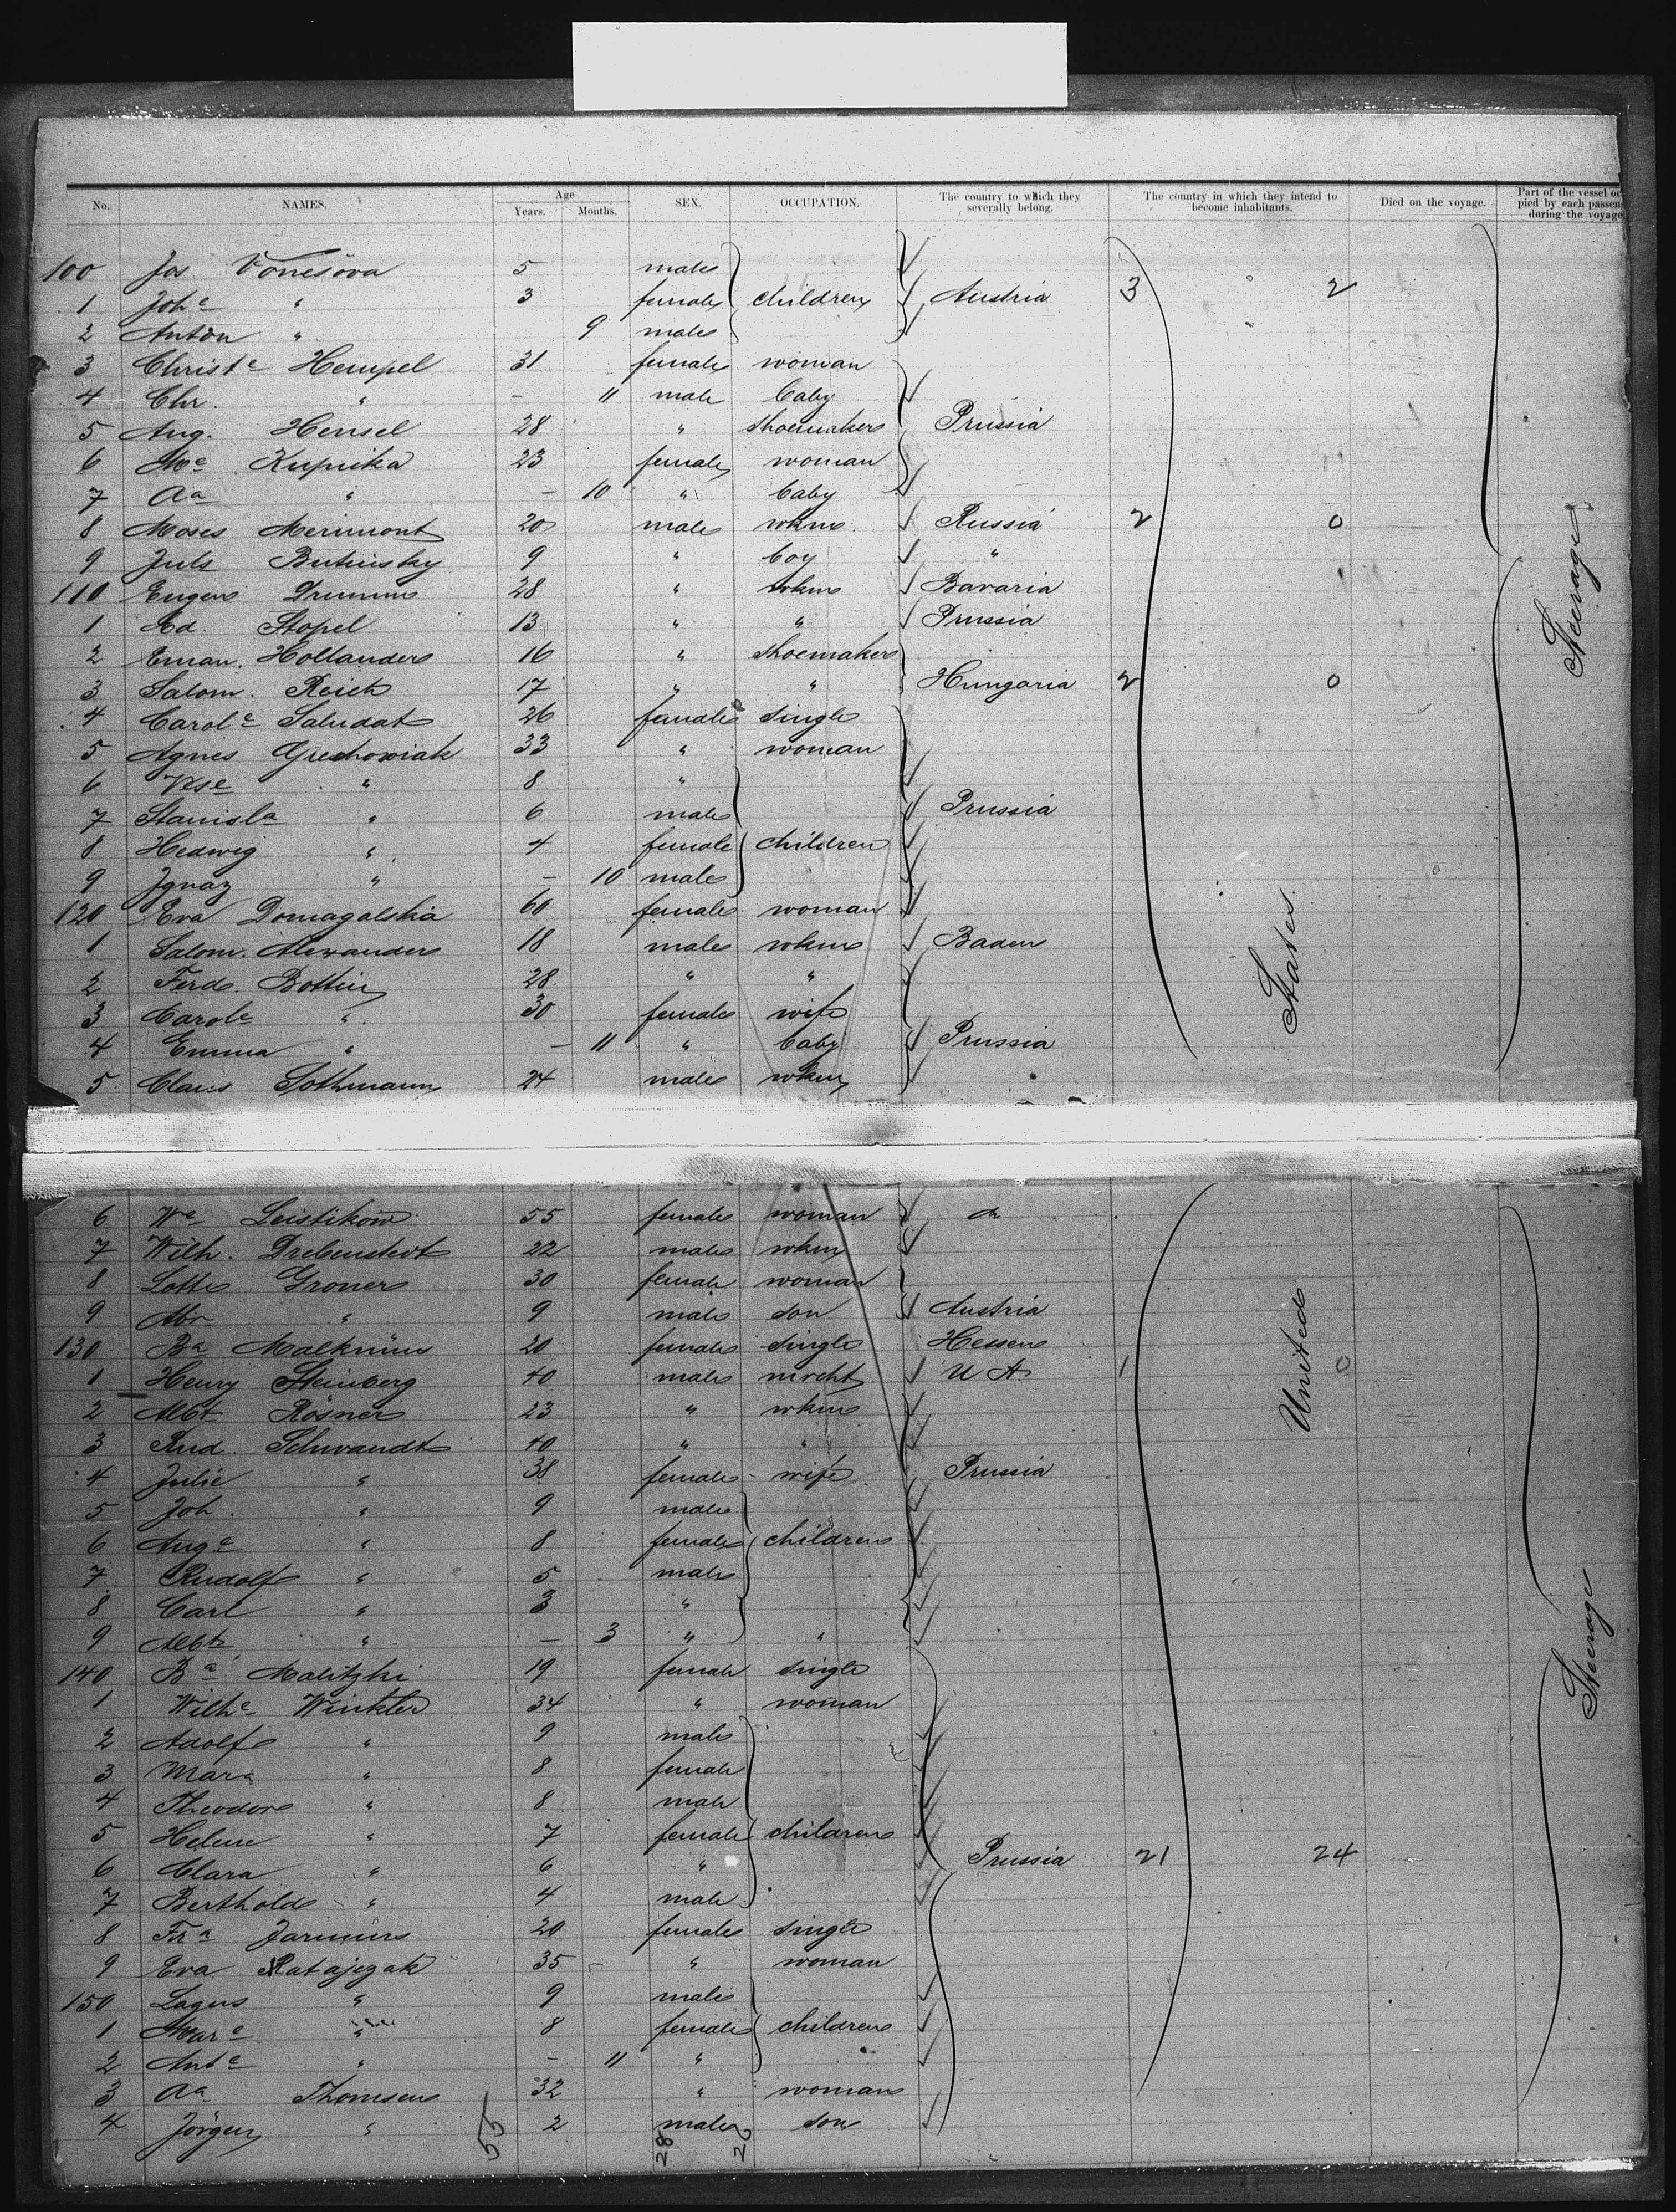 No. NAMES. Age Years. Months. SEX. OCCUPATION. The country to which they severally belong. The country in which they intend to become inhabitants. Died on the voyage. Part of the vessel oc pied by each passen during the voyage
100 Jos Vonesova 5 male
1 Joh<sup>e</sup> " 3 female children Austria 3 2
2 Anton " 9 male
3 Christ<sup>e</sup> Hempel 31 female woman
4 Chr. " – 11 male baby
5 Aug. Hensel 28 " shoemaker Prussia
6 Kupnika 23 female woman
7 Aa " – 10 " baby
8 Moses Merimont 20 male wkm Russia 2 0
9 Juls 9 " boy "
110 Eugen Drumm 28 " wkm Bavaria
1 Ad. Stopel 13 " " Prussia
2 Eman. Hollander 16 " shoemaker
3 Salom. Reich 17 " " Hungaria 2 0
4 Carol<sup>e</sup> Saludat 26 female single
5 Agnes Grechowiak 33 " woman
6 " 8 "
7 Stanisl<sup>a</sup> " 6 male Prussia
8 Hedwig " 4 female children
9 Ignaz " – 10 male
120 Eva Domagalska 60 female woman
1 Salom. Alexander 18 male wkm Baden
2 Ferd. Bottin 28 " "
3 Carol<sup>e</sup> " 30 female wife
4 Emma " – 11 " baby Prussia
5 Claus Sothmann 24 male wkm
6 W<sup>e</sup> Leistikow 55 female woman do
7 Wilh. Drebenstedt 22 male wkm
8 Lotte Groner 30 female woman
9 Abr " 9 male son Austria
130 B<sup>a</sup> Malkmus 20 female single Hessen
1 Henry Steinberg 40 male mrcht U A. 1 0
2 Albt Rösner 23 " wkm
3 Rud. Schwandt 40 " "
4 Julie " 38 female wife Prussia
5 Joh. " 9 male
6 Aug<sup>e</sup> " 8 female children
7 Rudolf " 5 male
8 Carl " 3 "
9 Albt " – 3 " "
140 B<sup>a</sup> Malitzki 19 female single
1 Wilh<sup>e</sup> Winkler 34 " woman
2 Adolf " 9 male
3 Mar<sup>a</sup> " 8 female
4 Theodor " 8 male
5 Helene " 7 female children
6 Clara " 6 " Prussia 21 24
7 Berthold " 4 male
8 Fr<sup>a</sup> 20 female single
9 Eva Ratajczak 35 – " woman
150 " 9 male
1 Mar<sup>e</sup> " 8 female children
2 Ant<sup>e</sup> " – 11 "
3 Aa Thomsen 32 " woman
4 Jörgen " 2 male son
55 28 26
United States
Steerage
Steerage